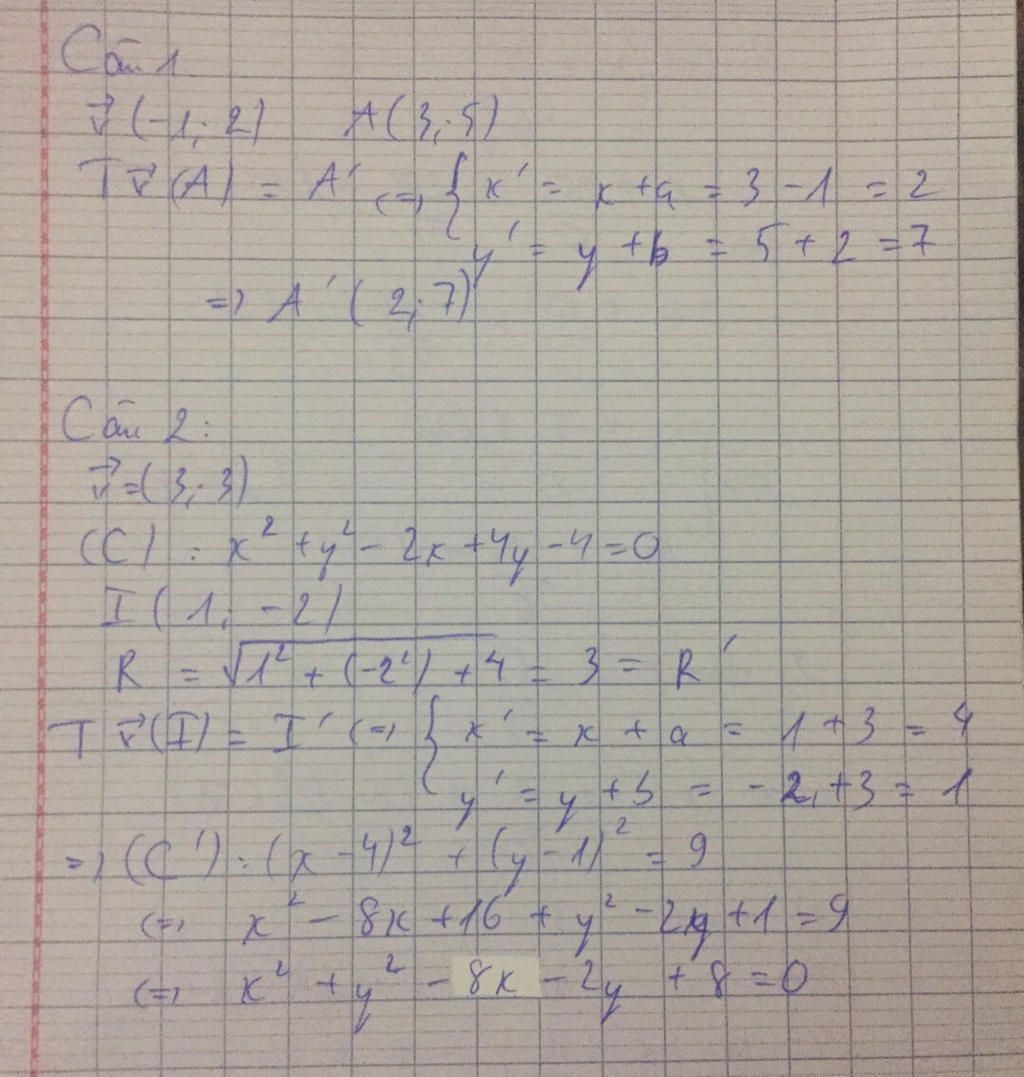 Câu 1
v⃗ (-1; 2) A(3; 5)
T v⃗ (A) = A' <=> { x' = x + a = 3 - 1 = 2
y' = y + b = 5 + 2 = 7
=> A' (2; 7)
Câu 2:
v⃗ = (3; 3)
(C) : x² + y² - 2x + 4y - 4 = 0
I (1; -2)
R = √(1² + (-2²) + 4) = 3 = R'
T v⃗ (I) = I' <=> { x' = x + a = 1 + 3 = 4
y' = y + b = -2 + 3 = 1
=> (C') : (x - 4)² + (y - 1)² = 9
<=> x² - 8x + 16 + y² - 2y + 1 = 9
<=> x² + y² - 8x - 2y + 8 = 0